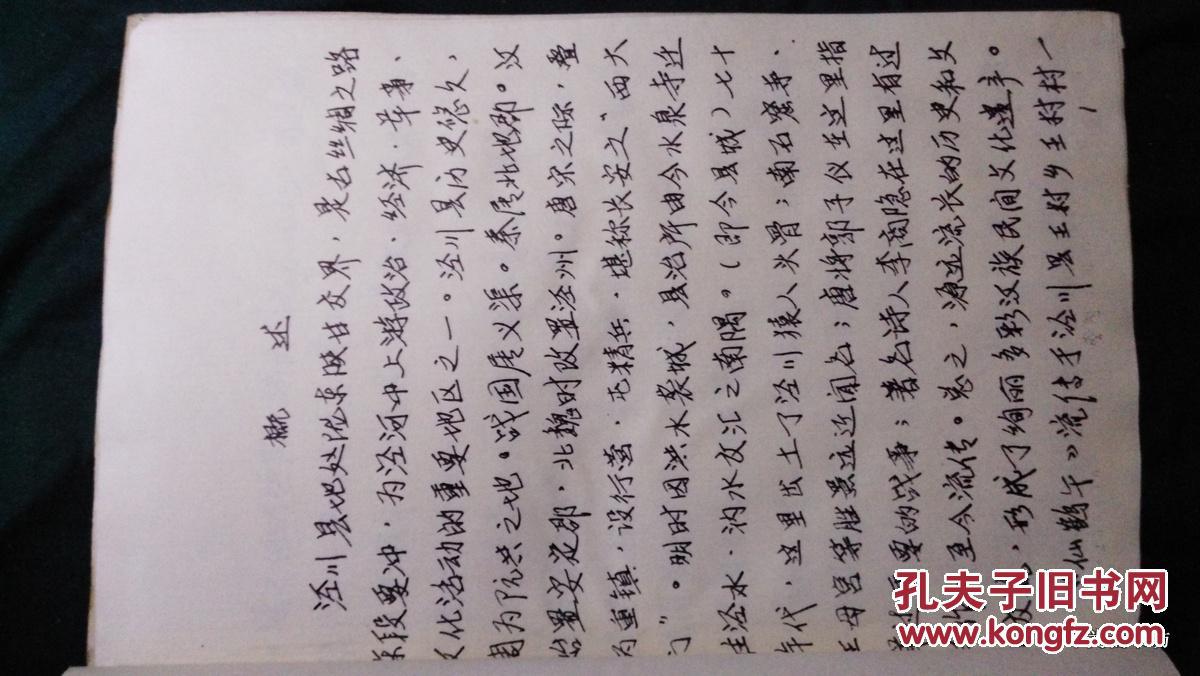 概 述
泾川县地处陇东陕甘交界，是古丝绸之路
东段要冲，为泾河中上游政治、经济、军事、
文化活动的重要地区之一。泾川县历史悠久，
周为阮共之地。战国属义渠。秦属北地郡。汉
置安定郡，北魏时改置泾州。唐宋之际，叠
为重镇，设行营，屯精兵，堪称长安之"西大
门"。明时因洪水袭城，县治所由今水泉寺迁
至泾水、汭水交汇之南隅。（即今县城）七十
年代，这里出土了泾川猿人头骨；南石窟寺、
王母宫等胜景远近闻名；唐将郭子仪在这里指
要的战事；著名诗人李商隐在这里有过
至今流传。总之，源远流长的历史和文
，形成了绚丽多彩汉族民间文化遗产。
仙鹤午》流传于泾川县王村乡王村村一
1
孔夫子旧书网
www.kongfz.com